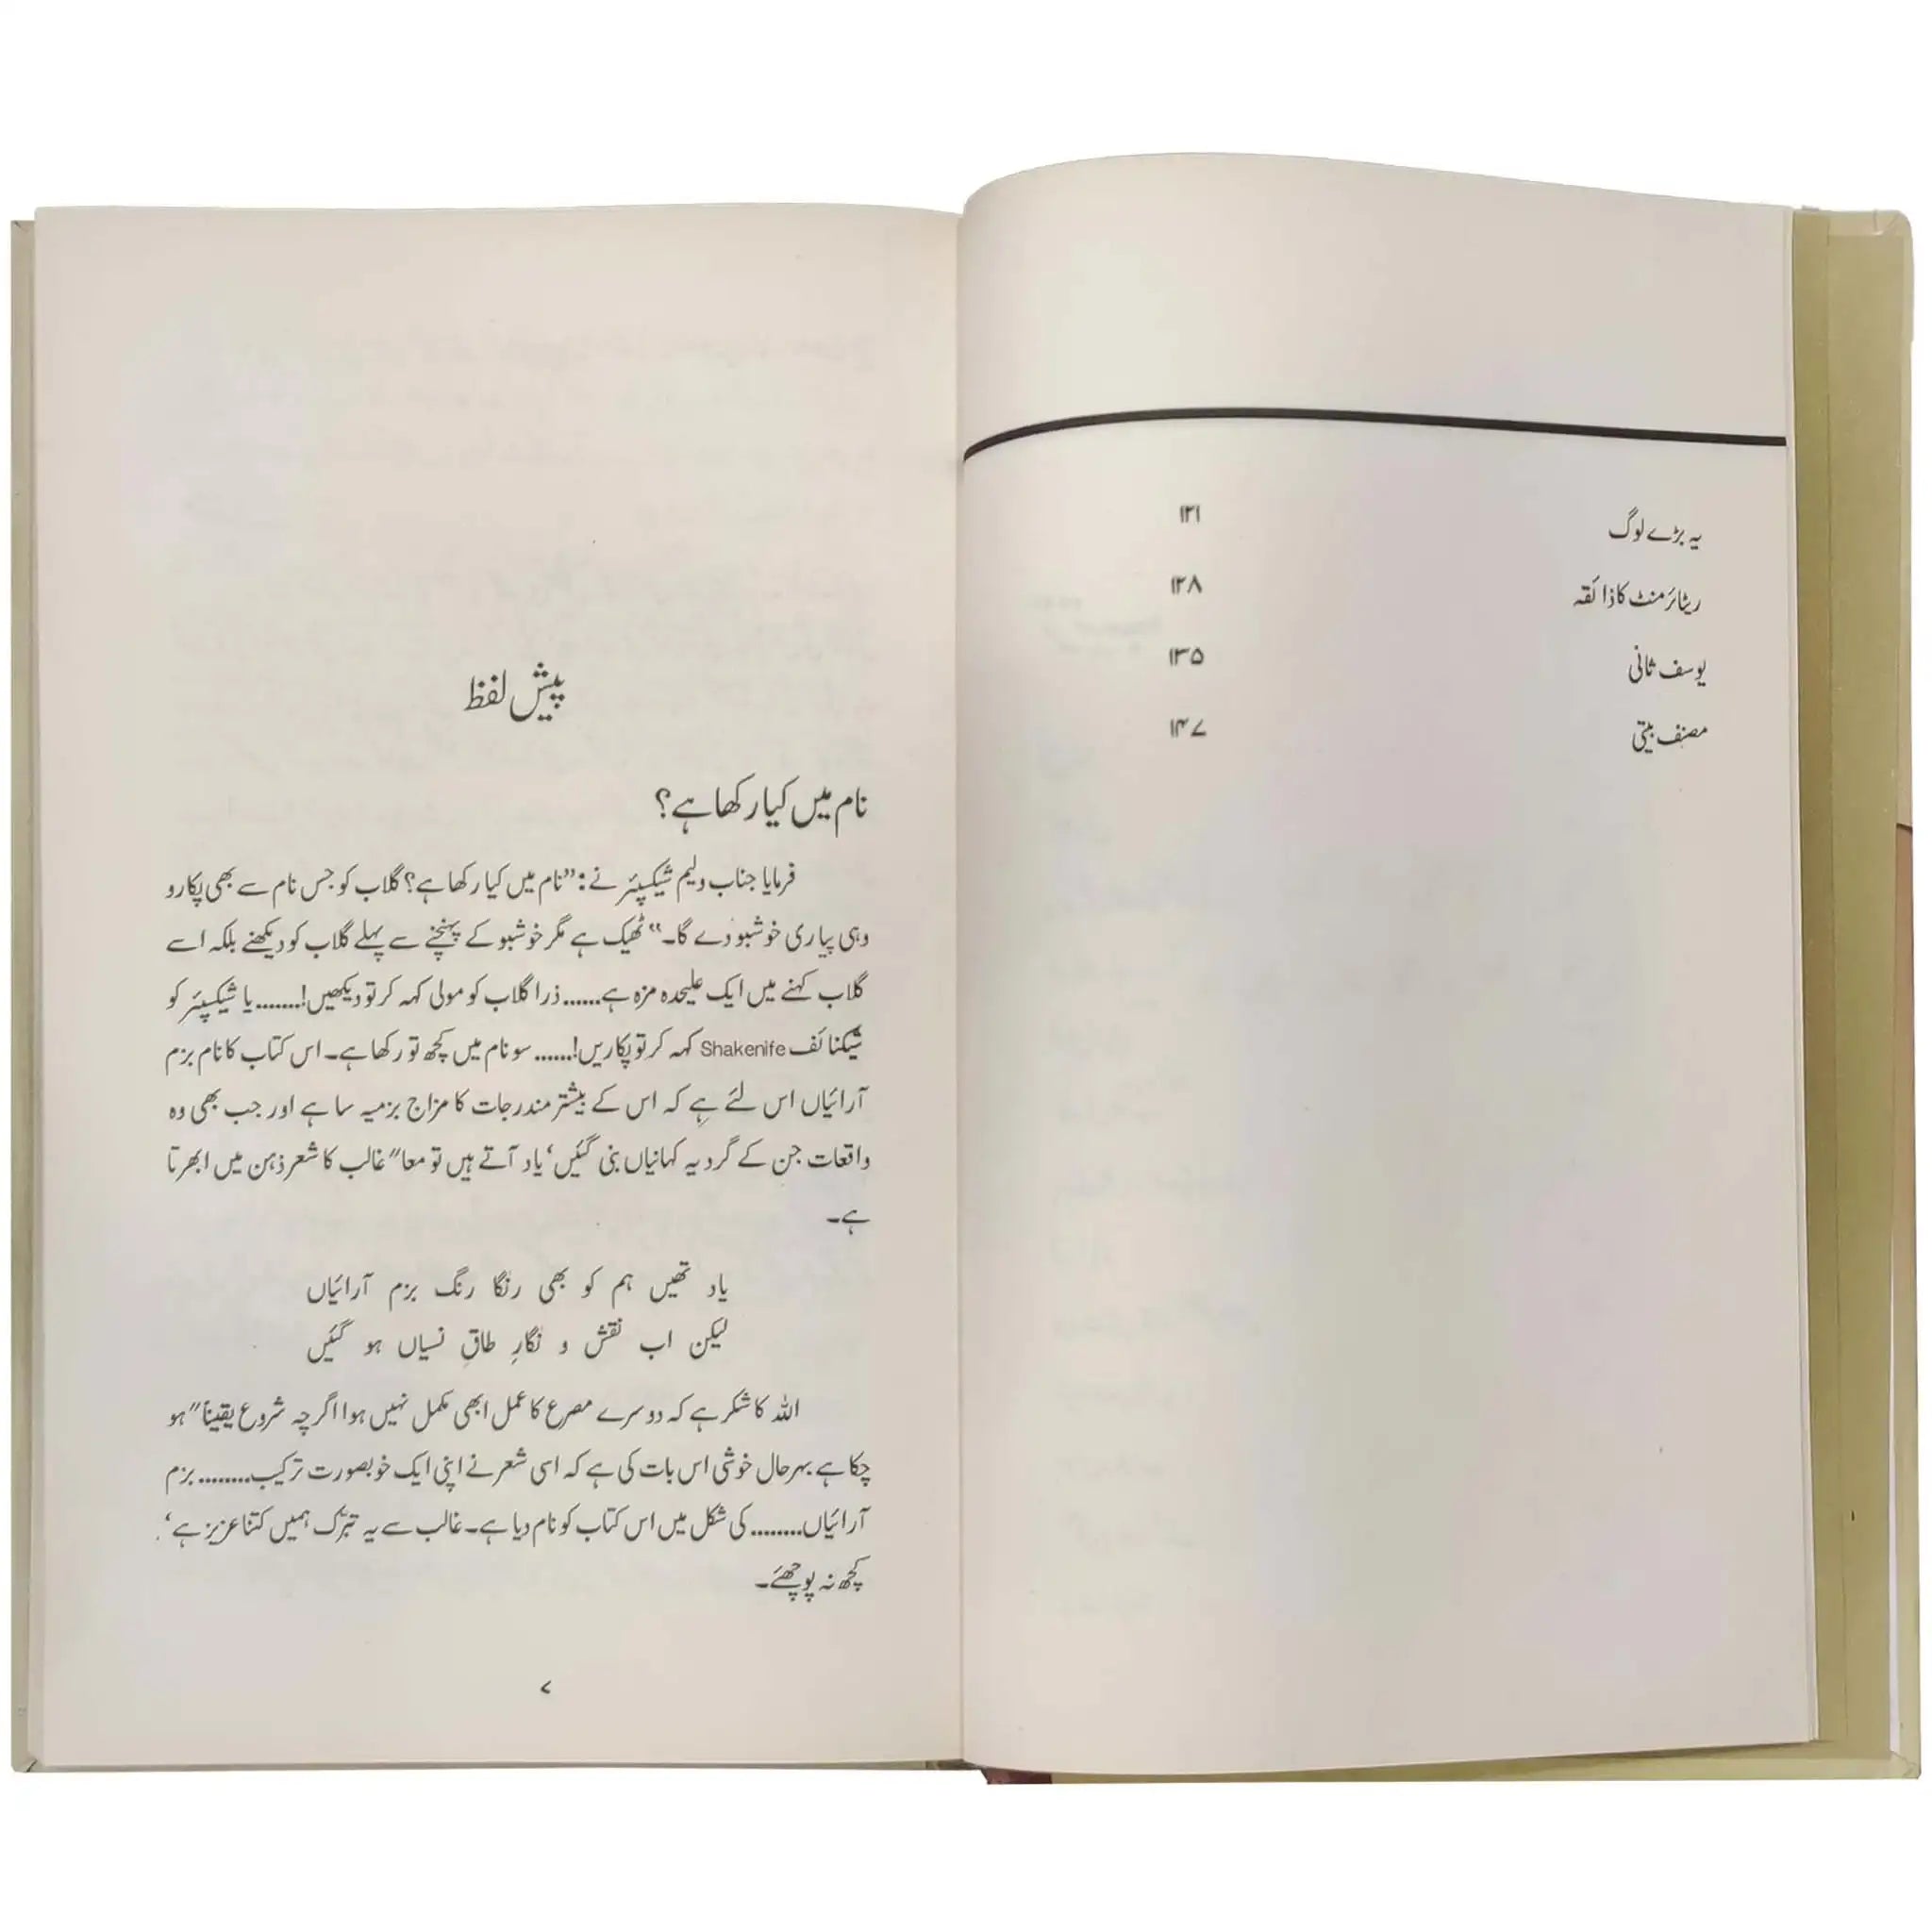 یہ بڑے لوگ ۱۲۱
ریٹائرمنٹ کا ذائقہ ۱۲۸
یوسف ثانی ۱۳۵
مصنف بیتی ۱۴۷
پیش لفظ
نام میں کیا رکھا ہے؟
فرمایا جناب ولیم شیکسپئر نے: ”نام میں کیا رکھا ہے؟ گلاب کو جس نام سے بھی پکارو
وہی پیاری خوشبو دے گا۔“ ٹھیک ہے مگر خوشبو کے پہنچنے سے پہلے گلاب کو دیکھنے بلکہ اسے
گلاب کہنے میں ایک علیحدہ مزہ ہے...... ذرا گلاب کو مولی کہہ کر تو دیکھیں!....... یا شیکسپئر کو
شیکنائف Shakenife کہہ کر تو پکاریں!...... سو نام میں کچھ تو رکھا ہے۔ اس کتاب کا نام بزم
آرائیاں اس لئے ہے کہ اس کے بیشتر مندرجات کا مزاج بزمیہ سا ہے اور جب بھی وہ
واقعات جن کے گرد یہ کہانیاں بنی گئیں، یاد آتے ہیں تو معا" غالب کا شعر ذہن میں ابھرتا
ہے۔
یاد تھیں ہم کو بھی رنگا رنگ بزم آرائیاں
لیکن اب نقش و نگارِ طاقِ نسیاں ہو گئیں
اللہ کا شکر ہے کہ دوسرے مصرع کا عمل ابھی مکمل نہیں ہوا اگرچہ شروع یقیناً" ہو
چکا ہے بہرحال خوشی اس بات کی ہے کہ اسی شعر نے اپنی ایک خوبصورت ترکیب........ بزم
آرائیاں........ کی شکل میں اس کتاب کو نام دیا ہے۔ غالب سے یہ تبرّک ہمیں کتنا عزیز ہے،
کچھ نہ پوچھئے۔
۷